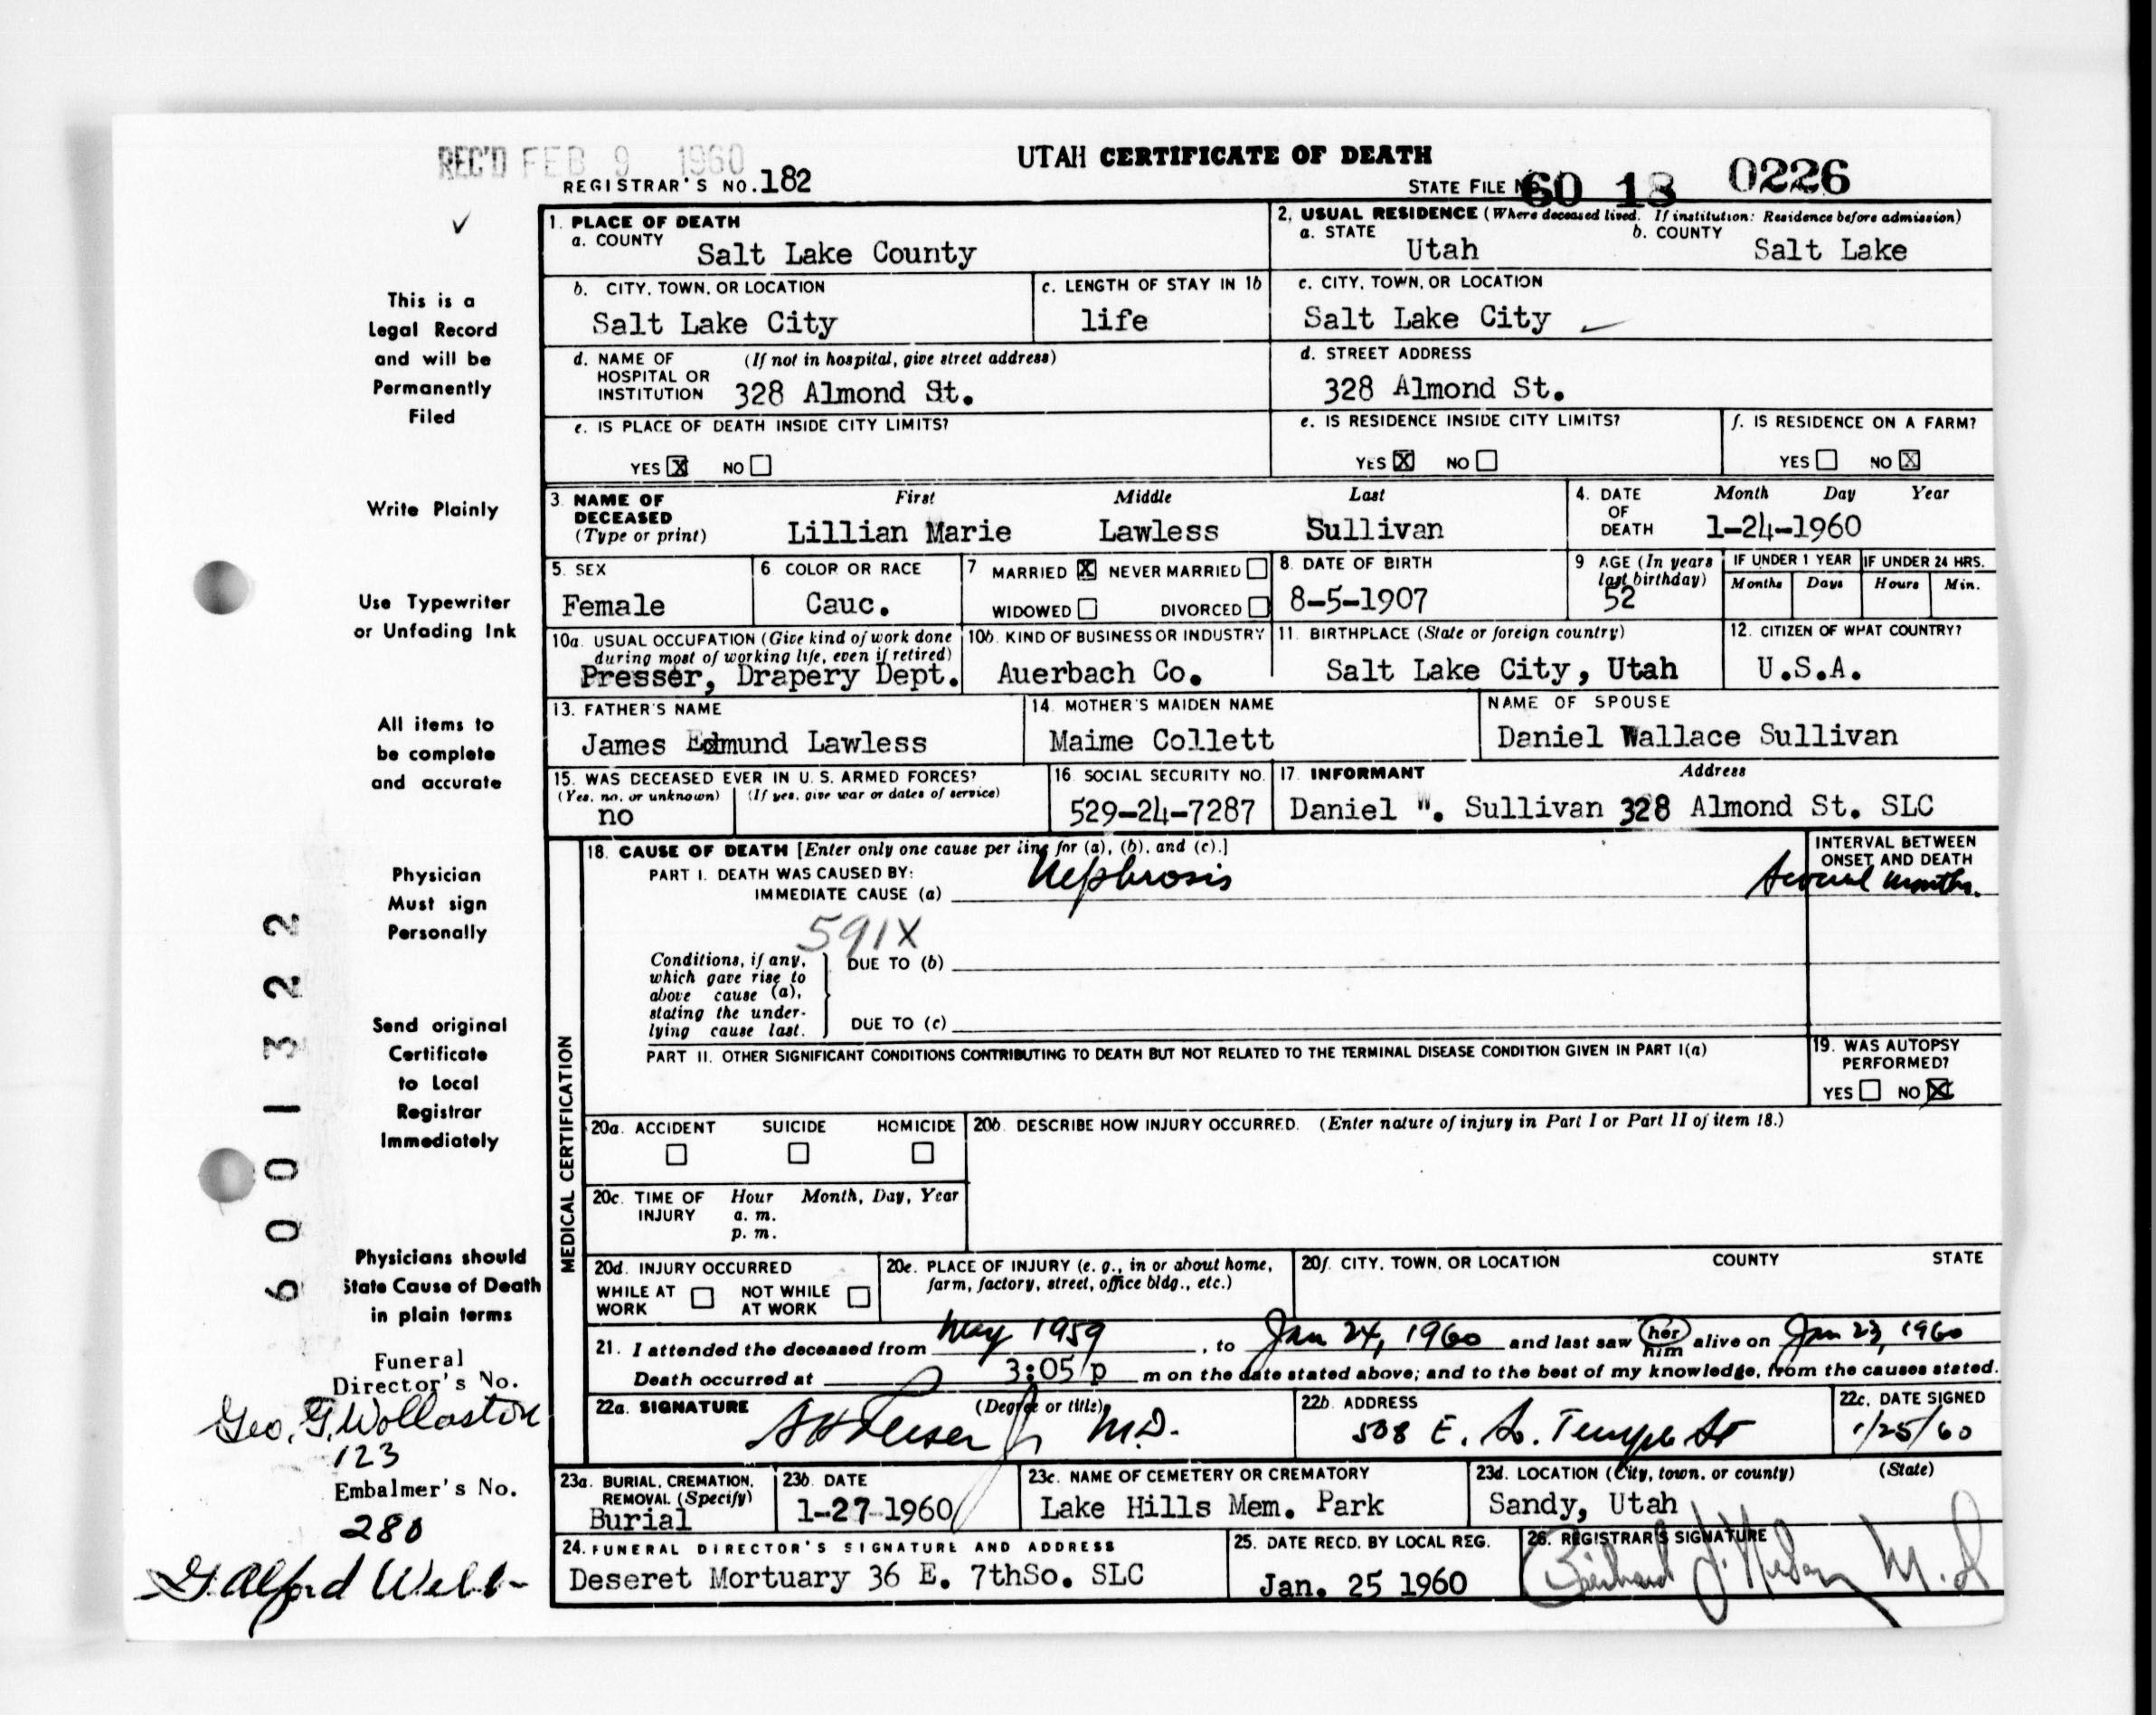 REC'D FEB 9 1960
UTAH CERTIFICATE OF DEATH
REGISTRAR'S NO. 182
STATE FILE NO. 60 18 0226
✓
This is a
Legal Record
and will be
Permanently
Filed
Write Plainly
Use Typewriter
or Unfading Ink
All items to
be complete
and accurate
Physician
Must sign
Personally
Send original
Certificate
to Local
Registrar
Immediately
Physicians should
State Cause of Death
in plain terms
Funeral
Director's No.
Geo. G. Wollaston
123
Embalmer's No.
280
G. Alford Webb
6001322
1. PLACE OF DEATH
a. COUNTY
Salt Lake County
2. USUAL RESIDENCE (Where deceased lived. If institution: Residence before admission)
a. STATE
Utah
b. COUNTY
Salt Lake
b. CITY, TOWN, OR LOCATION
Salt Lake City
c. LENGTH OF STAY IN 1b
life
c. CITY, TOWN, OR LOCATION
Salt Lake City
d. NAME OF (If not in hospital, give street address)
HOSPITAL OR
INSTITUTION
328 Almond St.
d. STREET ADDRESS
328 Almond St.
e. IS PLACE OF DEATH INSIDE CITY LIMITS?
YES X NO
e. IS RESIDENCE INSIDE CITY LIMITS?
YES X NO
f. IS RESIDENCE ON A FARM?
YES NO X
3. NAME OF
DECEASED
(Type or print)
First Middle Last
Lillian Marie Lawless Sullivan
4. DATE
OF
DEATH
Month Day Year
1-24-1960
5. SEX
Female
6. COLOR OR RACE
Cauc.
7. MARRIED X NEVER MARRIED
WIDOWED DIVORCED
8. DATE OF BIRTH
8-5-1907
9. AGE (In years
last birthday)
52
IF UNDER 1 YEAR
Months Days
IF UNDER 24 HRS.
Hours Min.
10a. USUAL OCCUPATION (Give kind of work done
during most of working life, even if retired)
Presser, Drapery Dept.
10b. KIND OF BUSINESS OR INDUSTRY
Auerbach Co.
11. BIRTHPLACE (State or foreign country)
Salt Lake City, Utah
12. CITIZEN OF WHAT COUNTRY?
U.S.A.
13. FATHER'S NAME
James Edmund Lawless
14. MOTHER'S MAIDEN NAME
Maime Collett
NAME OF SPOUSE
Daniel Wallace Sullivan
15. WAS DECEASED EVER IN U. S. ARMED FORCES?
(Yes, no, or unknown) (If yes, give war or dates of service)
no
16. SOCIAL SECURITY NO.
529-24-7287
17. INFORMANT Address
Daniel W. Sullivan 328 Almond St. SLC
MEDICAL CERTIFICATION
18. CAUSE OF DEATH [Enter only one cause per line for (a), (b), and (c).]
PART I. DEATH WAS CAUSED BY:
IMMEDIATE CAUSE (a) Nephrosis
INTERVAL BETWEEN
ONSET AND DEATH
Several months.
591X
Conditions, if any,
which gave rise to
above cause (a),
stating the under-
lying cause last.
DUE TO (b)
DUE TO (c)
PART II. OTHER SIGNIFICANT CONDITIONS CONTRIBUTING TO DEATH BUT NOT RELATED TO THE TERMINAL DISEASE CONDITION GIVEN IN PART I(a)
19. WAS AUTOPSY
PERFORMED?
YES NO X
20a. ACCIDENT SUICIDE HOMICIDE
20b. DESCRIBE HOW INJURY OCCURRED. (Enter nature of injury in Part I or Part II of item 18.)
20c. TIME OF
INJURY
Hour Month, Day, Year
a. m.
p. m.
20d. INJURY OCCURRED
WHILE AT
WORK
NOT WHILE
AT WORK
20e. PLACE OF INJURY (e. g., in or about home,
farm, factory, street, office bldg., etc.)
20f. CITY, TOWN, OR LOCATION COUNTY STATE
21. I attended the deceased from May 1959, to Jan 24, 1960 and last saw her him alive on Jan 23, 1960
Death occurred at 3:05 p m on the date stated above; and to the best of my knowledge, from the causes stated.
22a. SIGNATURE (Degree or title)
M.D.
22b. ADDRESS
508 E. So. Temple St
22c. DATE SIGNED
1/25/60
23a. BURIAL, CREMATION,
REMOVAL (Specify)
Burial
23b. DATE
1-27-1960
23c. NAME OF CEMETERY OR CREMATORY
Lake Hills Mem. Park
23d. LOCATION (City, town, or county) (State)
Sandy, Utah
24. FUNERAL DIRECTOR'S SIGNATURE AND ADDRESS
Deseret Mortuary 36 E. 7thSo. SLC
25. DATE RECD. BY LOCAL REG.
Jan. 25 1960
26. REGISTRAR'S SIGNATURE
M.D